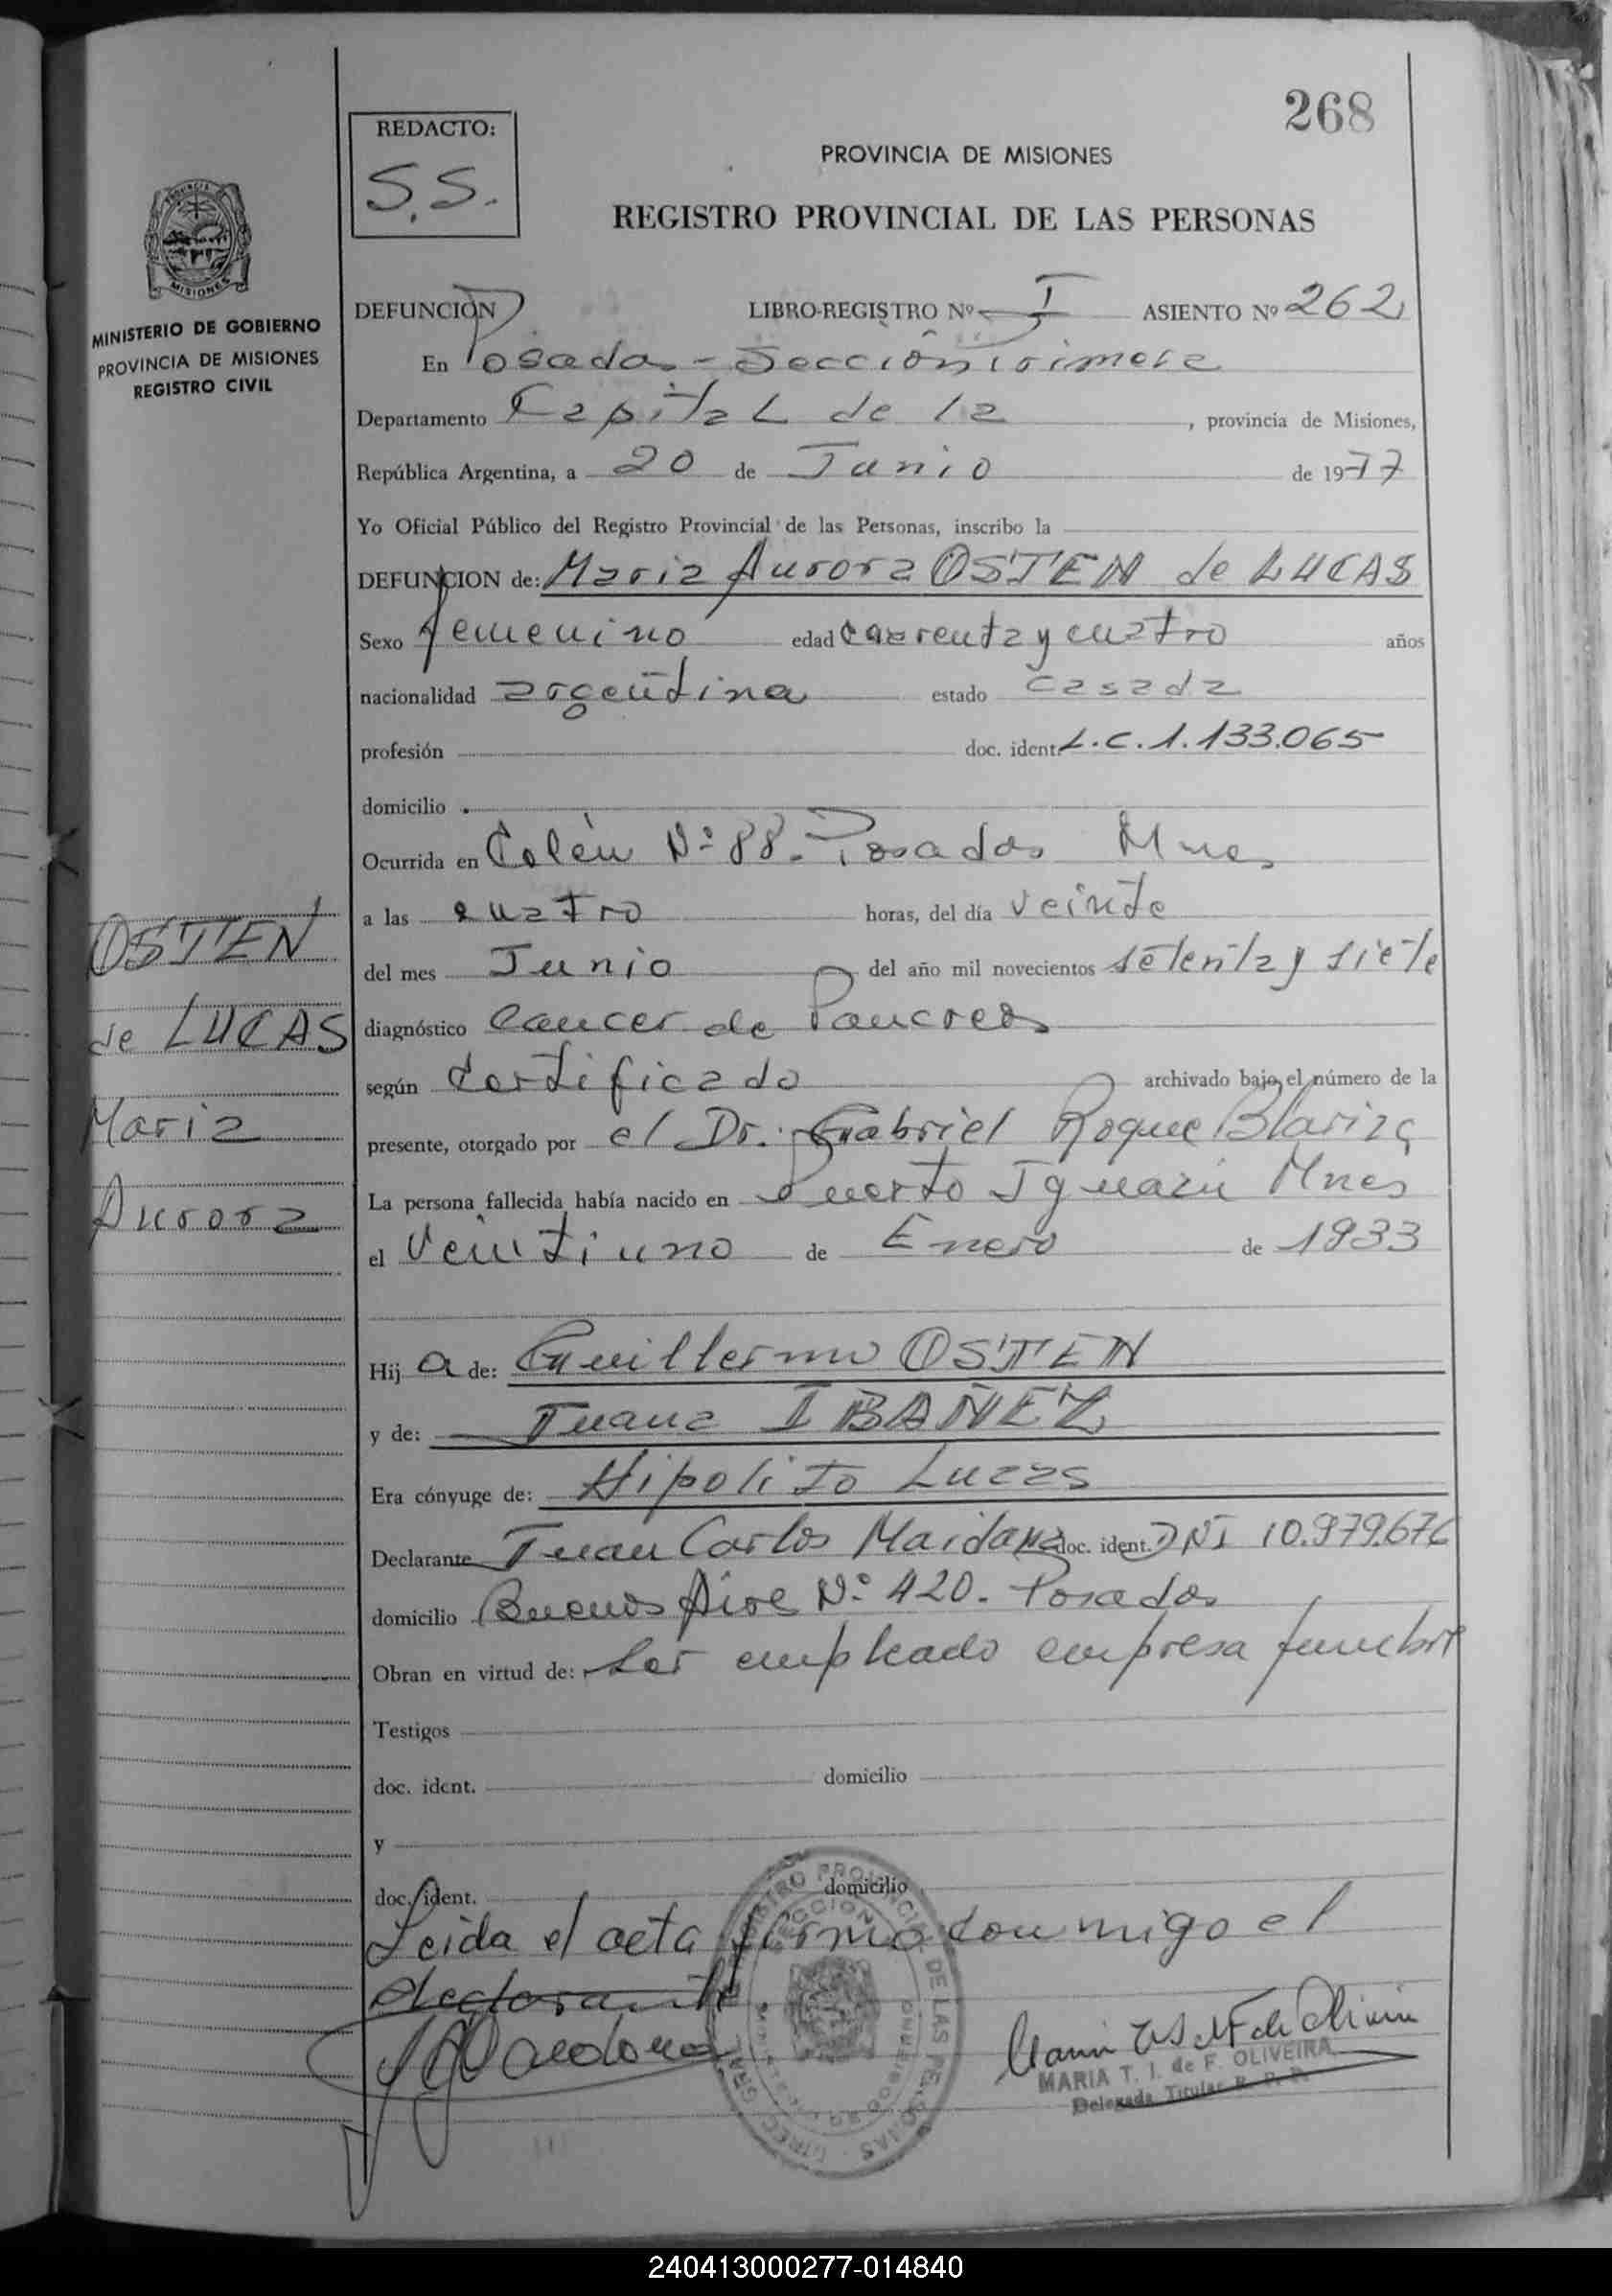 268
REDACTO:
S.S.
PROVINCIA DE MISIONES
REGISTRO PROVINCIAL DE LAS PERSONAS
MISIONES
MINISTERIO DE GOBIERNO
PROVINCIA DE MISIONES
REGISTRO CIVIL
DEFUNCION LIBRO-REGISTRO Nº I ASIENTO Nº 262
En Posadas - Sección Primera
Departamento Capital de la , provincia de Misiones,
República Argentina, a 20 de Junio de 1977
Yo Oficial Público del Registro Provincial de las Personas, inscribo la
DEFUNCION de: Maria Aurora OSTEN de LUCAS
Sexo femenino edad cuarenta y cuatro años
nacionalidad argentina estado casada
profesión doc. ident. L.C.1.133.065
domicilio
Ocurrida en Colón Nº 88. Posadas Mnes
a las cuatro horas, del día veinte
del mes Junio del año mil novecientos setenta y siete
diagnóstico Cancer de Pancreas
según Certificado archivado bajo el número de la
presente, otorgado por el Dr. Gabriel Roque
La persona fallecida había nacido en Puerto Iguazú Mnes
el Veintiuno de Enero de 1933
Hij a de: Guillermo OSTEN
y de: Juana IBAÑEZ
Era cónyuge de: Hipolito Lucas
Declarante Juan Carlos Maidana doc. ident. DNI 10.979.676
domicilio Buenos Aires Nº 420. Posadas
Obran en virtud de: Ser empleado empresa funebre
Testigos
doc. ident. domicilio
y
doc. ident. domicilio
Leida el acta firma conmigo el
declarante
MARIA T. I. de F. OLIVEIRA
Delegada Titular R. P. P.
OSTEN
de LUCAS
Maria
Aurora
240413000277-014840